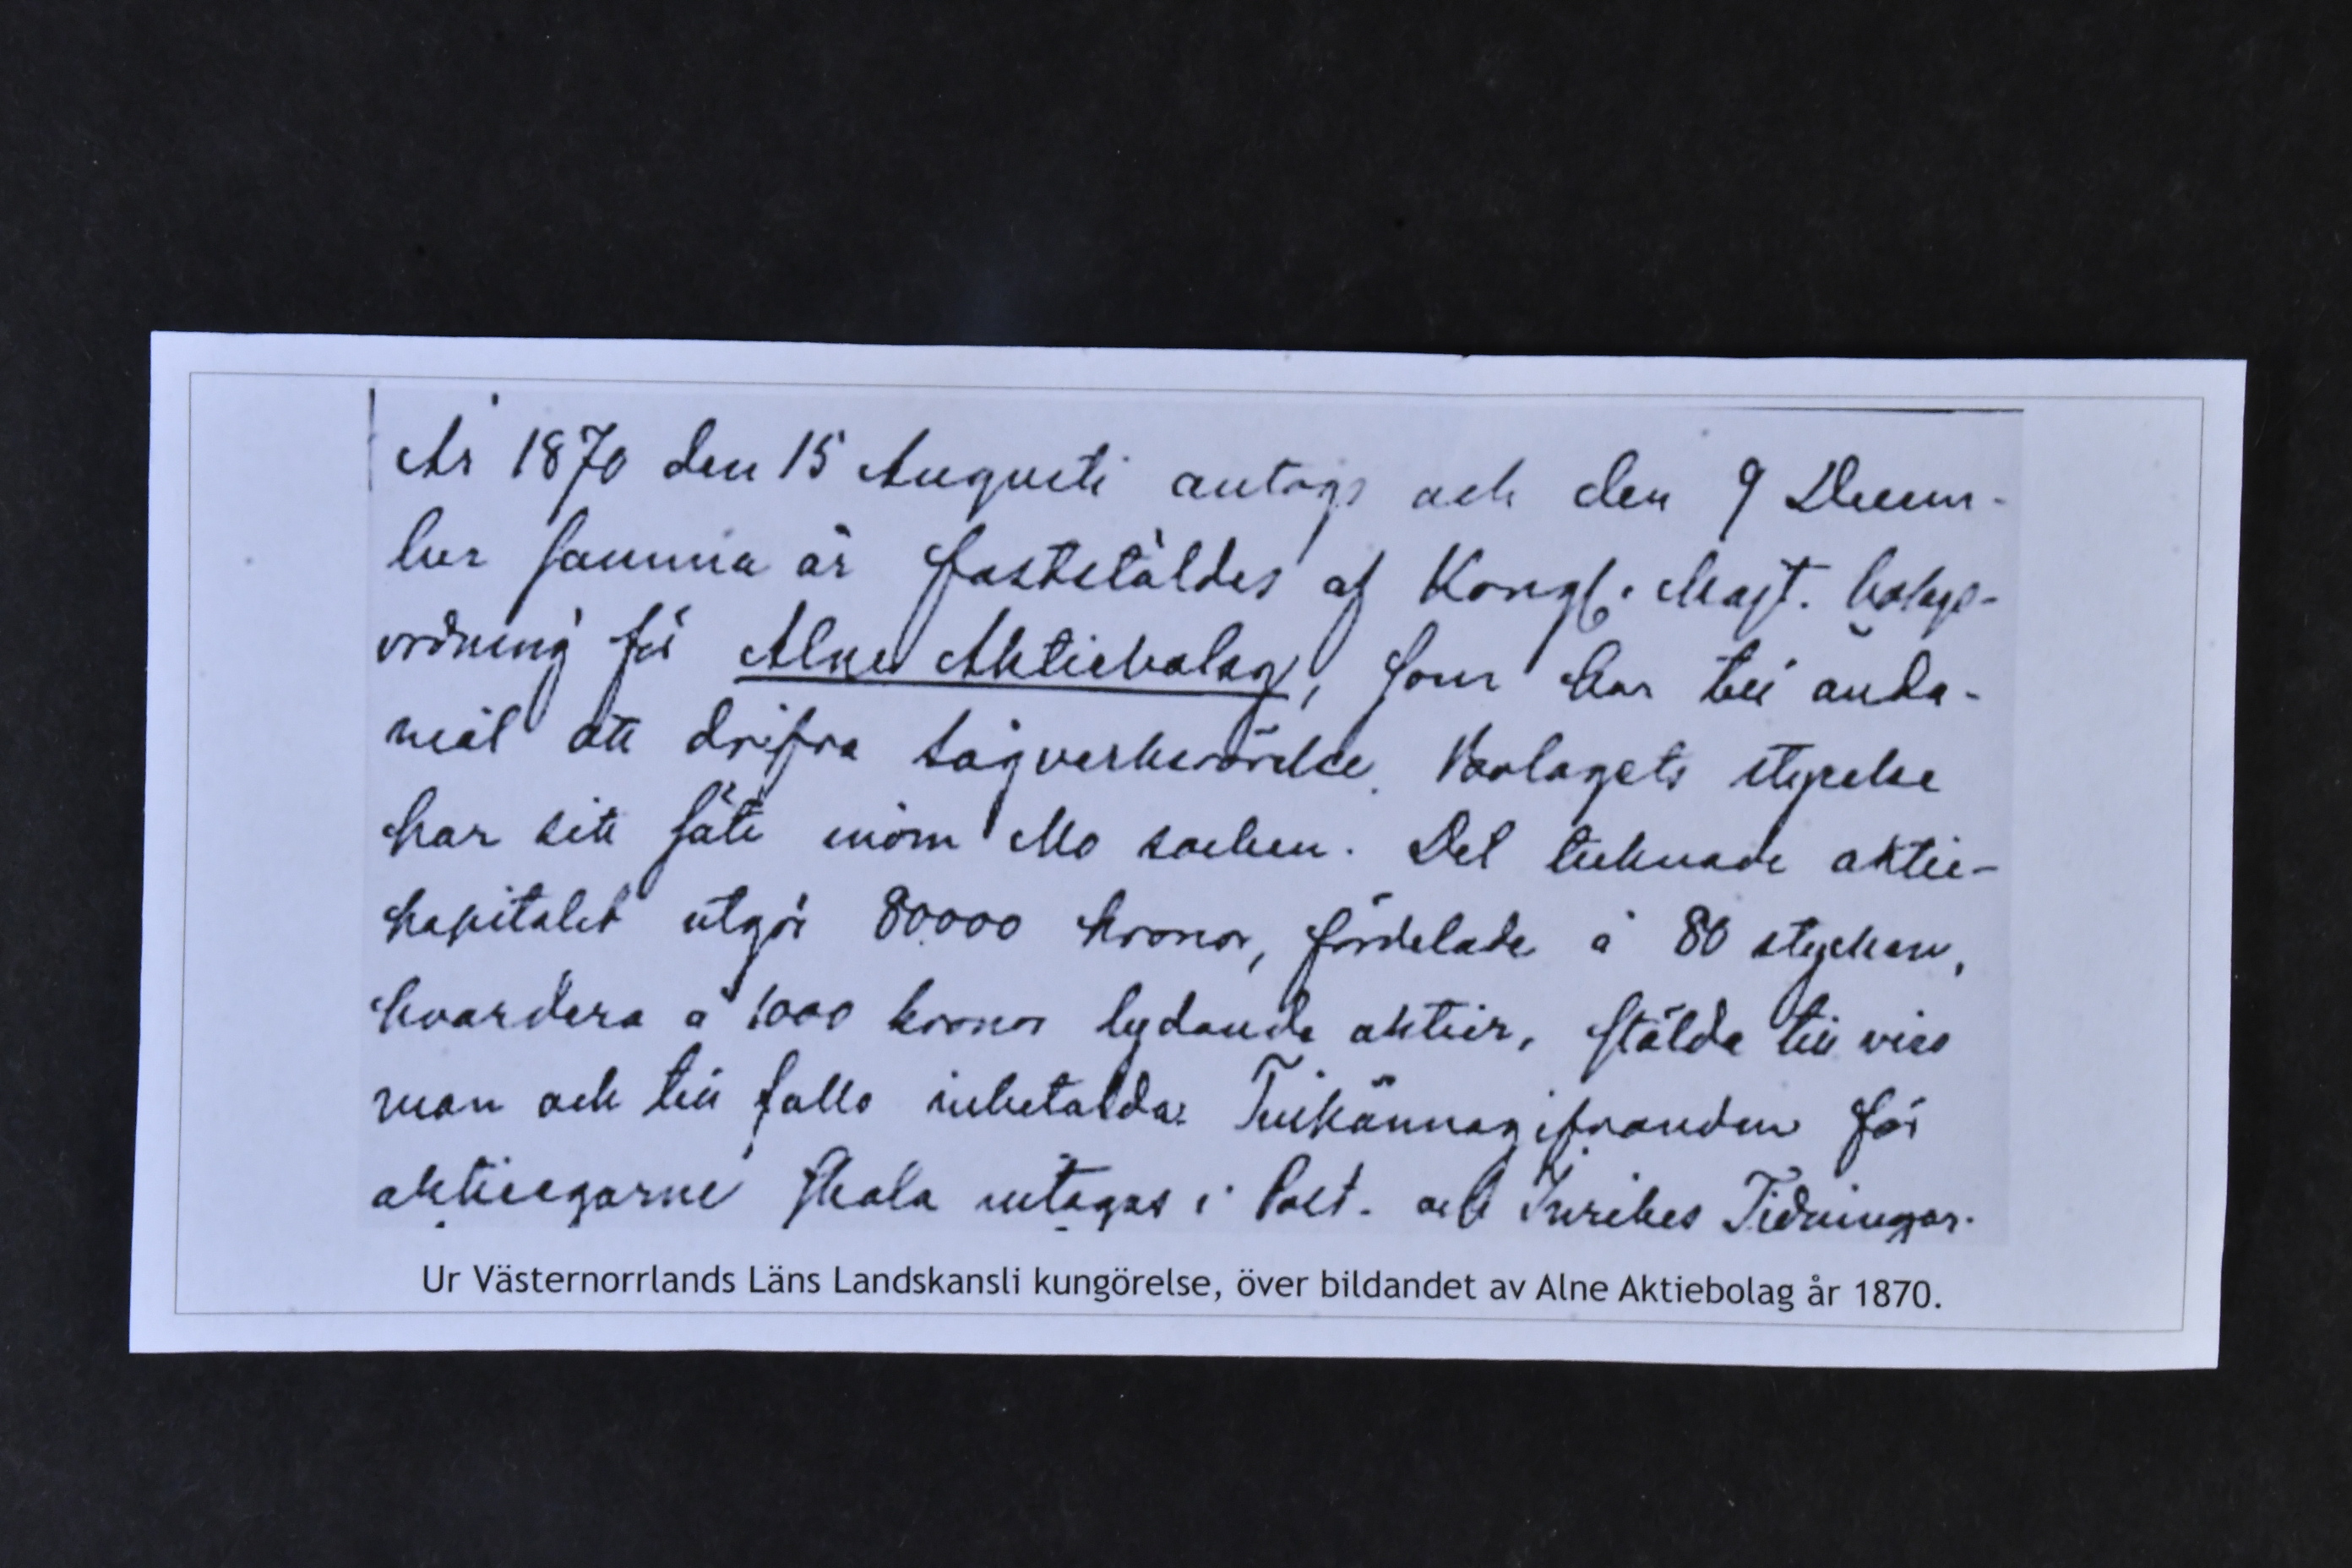 År 1870 den 15 Augusti antogs och den 9 Decem-
ber samma år fastställdes af Kongl. Majt. bolags-
ordning för Alne Aktiebolag, som har till ända-
mål att drifva sågverksrörelse. Bolagets styrelse
har sitt säte inom Mo socken. Det tecknade aktie-
kapitalet utgör 80000 kronor, fördelade å 80 stycken,
hvardera å 1000 kronor lydande aktier, stälda till viss
man och till fullo inbetalda. Tillkännagifvanden för
aktieegarne skola intagas i Post- och Inrikes Tidningar.
Ur Västernorrlands Läns Landskansli kungörelse, över bildandet av Alne Aktiebolag år 1870.